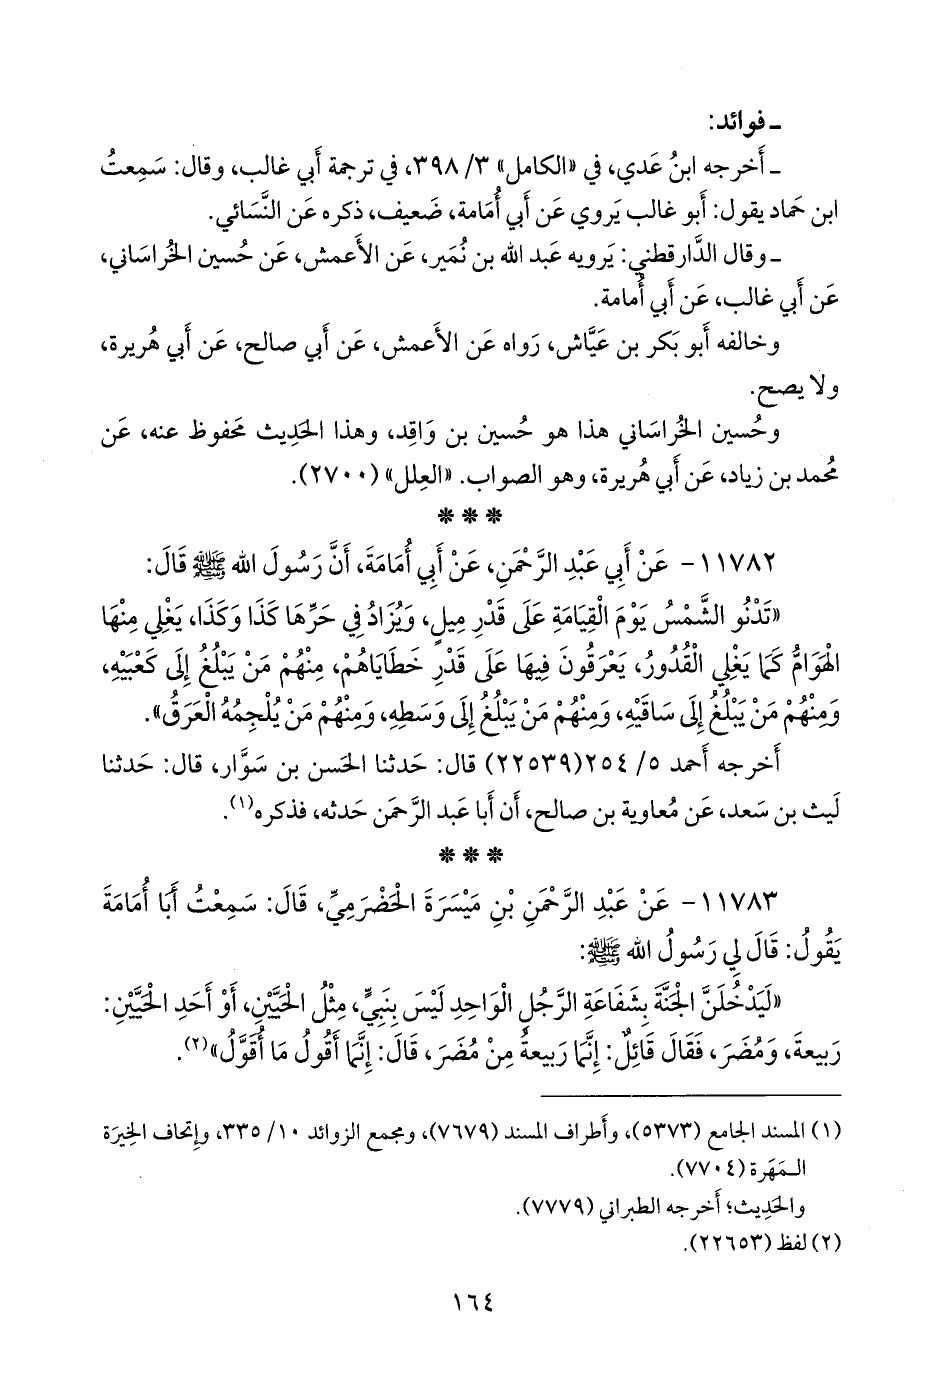 ـ فوائد:
ـ أَخرجه ابنُ عَدي، في «الكامل» ٣/ ٣٩٨، في ترجمة أَبي غالب، وقال: سَمِعتُ
ابن حَماد يقول: أَبو غالب يَروي عَن أَبي أُمَامة، ضَعيف، ذكره عَن النَّسَائي.
ـ وقال الدَّارقطني: يَرويه عَبد الله بن نُمَير، عَن الأَعمش، عَن حُسين الخُراسَاني،
عَن أَبي غالب، عَن أَبي أُمامة.
وخالفه أَبو بَكر بن عَيَّاش، رَواه عَن الأَعمش، عَن أَبي صالح، عَن أَبي هُريرة،
ولا يصح.
وحُسين الخُراسَاني هذا هو حُسين بن وَاقِد، وهذا الحَدِيث مَحفوظ عنه، عَن
مُحمد بن زياد، عَن أَبي هُريرة، وهو الصواب. «العِلل» (٢٧٠٠).
* * *
١١٧٨٢- عَنْ أَبِي عَبْدِ الرَّحْمَنِ، عَنْ أَبِي أُمَامَةَ، أَنَّ رَسُولَ الله ﷺ قَالَ:
«تَدْنُو الشَّمْسُ يَوْمَ الْقِيَامَةِ عَلَى قَدْرِ مِيلٍ، وَيُزَادُ فِي حَرِّهَا كَذَا وَكَذَا، يَغْلِي مِنْهَا
الْهَوَامُّ كَمَا يَغْلِي الْقُدُورُ، يَعْرَقُونَ فِيهَا عَلَى قَدْرِ خَطَايَاهُمْ، مِنْهُمْ مَنْ يَبْلُغُ إِلَى كَعْبَيْهِ،
وَمِنْهُمْ مَنْ يَبْلُغُ إِلَى سَاقَيْهِ، وَمِنْهُمْ مَنْ يَبْلُغُ إِلَى وَسَطِهِ، وَمِنْهُمْ مَنْ يُلْجِمُهُ الْعَرَقُ».
أَخرجه أَحمد ٥/ ٢٥٤(٢٢٥٣٩) قال: حَدثنا الحَسن بن سَوَّار، قال: حَدثنا
لَيث بن سَعد، عَن مُعاوية بن صالح، أَن أَبا عَبد الرَّحمَن حَدثه، فذكره(١).
* * *
١١٧٨٣- عَنْ عَبْدِ الرَّحْمَنِ بْنِ مَيْسَرَةَ الْحَضْرَمِيِّ، قَالَ: سَمِعْتُ أَبَا أُمَامَةَ
يَقُولُ: قَالَ لِي رَسُولُ الله ﷺ:
«لَيَدْخُلَنَّ الْجَنَّةَ بِشَفَاعَةِ الرَّجُلِ الْوَاحِدِ لَيْسَ بِنَبِيٍّ، مِثْلُ الْحَيَّيْنِ، أَوْ أَحَدِ الْحَيَّيْنِ:
رَبِيعةَ، وَمُضَرَ، فَقَالَ قَائِلٌ: إِنَّمَا رَبِيعةُ مِنْ مُضَرَ، قَالَ: إِنَّمَا أَقُولُ مَا أُقَوَّلُ»(٢).
(١) المسند الجامع (٥٣٧٣)، وأطراف المسند (٧٦٧٩)، ومجمع الزوائد ١٠/ ٣٣٥، وإتحاف الخِيرَة
المَهَرة (٧٧٠٤).
والحَدِيث؛ أَخرجه الطبراني (٧٧٧٩).
(٢) لفظ (٢٢٦٥٣).
١٦٤